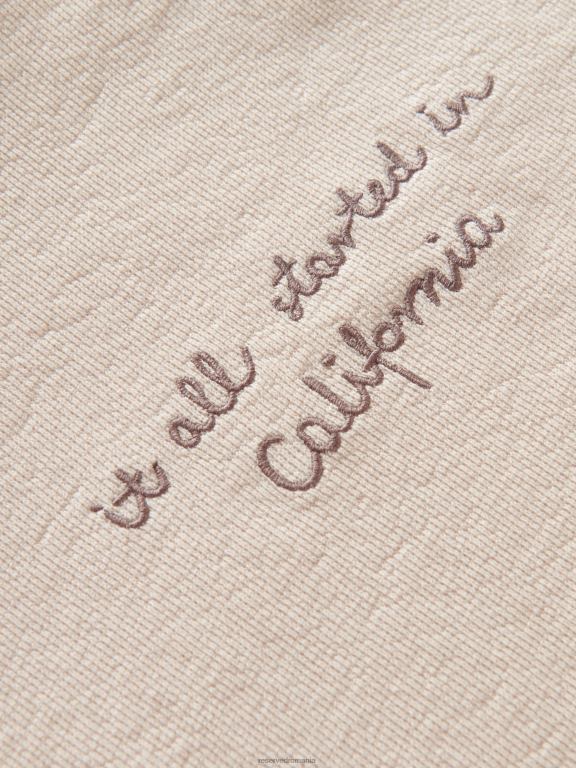 it all started in
California
reservedromania